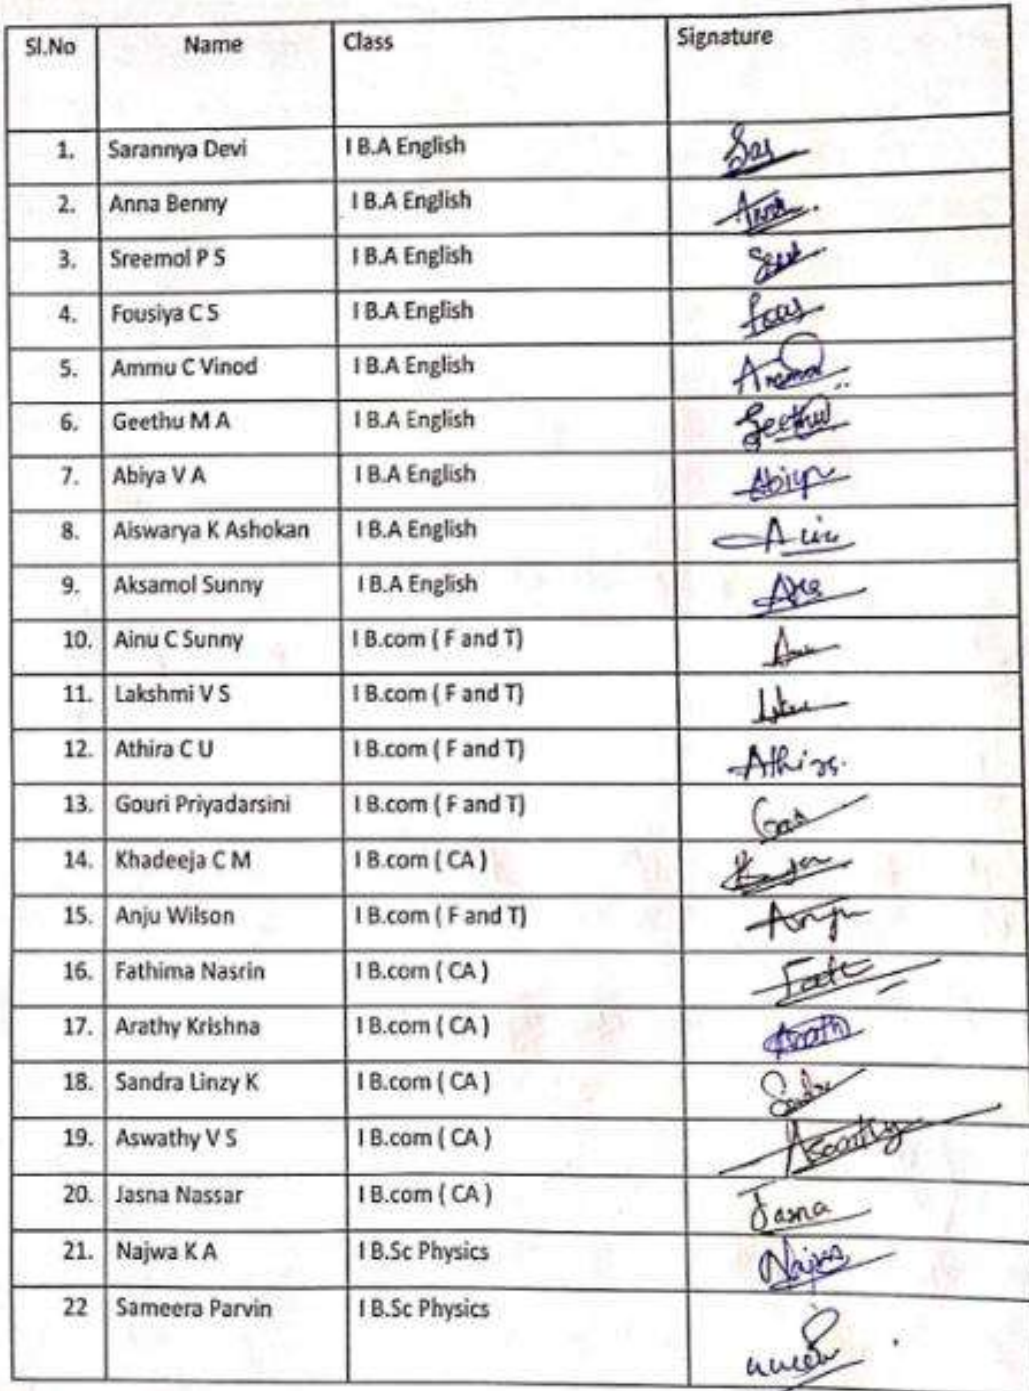 Sl.No Name Class Signature
1. Sarannya Devi I B.A English
2. Anna Benny I B.A English
3. Sreemol P S I B.A English
4. Fousiya C S I B.A English
5. Ammu C Vinod I B.A English
6. Geethu M A I B.A English Geethu
7. Abiya V A I B.A English Abiya
8. Aiswarya K Ashokan I B.A English
9. Aksamol Sunny I B.A English
10. Ainu C Sunny I B.com ( F and T)
11. Lakshmi V S I B.com ( F and T)
12. Athira C U I B.com ( F and T) Athira
13. Gouri Priyadarsini I B.com ( F and T)
14. Khadeeja C M I B.com ( CA )
15. Anju Wilson I B.com ( F and T) Anju
16. Fathima Nasrin I B.com ( CA )
17. Arathy Krishna I B.com ( CA )
18. Sandra Linzy K I B.com ( CA )
19. Aswathy V S I B.com ( CA ) Aswathy
20. Jasna Nassar I B.com ( CA ) Jasna
21. Najwa K A I B.Sc Physics
22 Sameera Parvin I B.Sc Physics